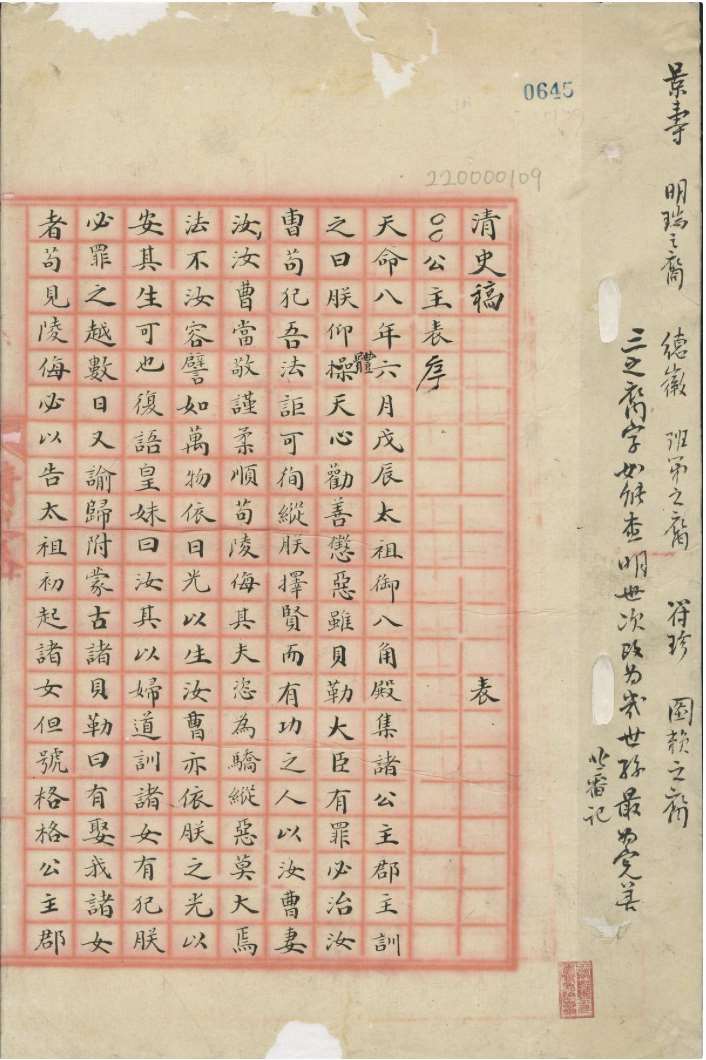 0645
220000109
景壽 明瑞之裔 德徽 班第之裔 符珍 圖賴之裔
三之裔字如能查明世次改為幾世孫最為完善
清史稿 表
公主表序
天命八年六月戊辰太祖御八角殿集諸公主郡主訓
之曰朕仰體操天心勸善懲惡雖貝勒大臣有罪必治汝
曹苟犯吾法詎可徇縱朕擇賢而有功之人以汝曹妻
汝汝曹當敬謹柔順苟陵侮其夫恣為驕縱惡莫大焉
法不汝容譬如萬物依日光以生汝曹亦依朕之光以
安其生可也復語皇妹曰汝其以婦道訓諸女有犯朕
必罪之越數日又諭歸附蒙古諸貝勒曰有娶我諸女
者苟見陵侮必以告太祖初起諸女但號格格公主郡